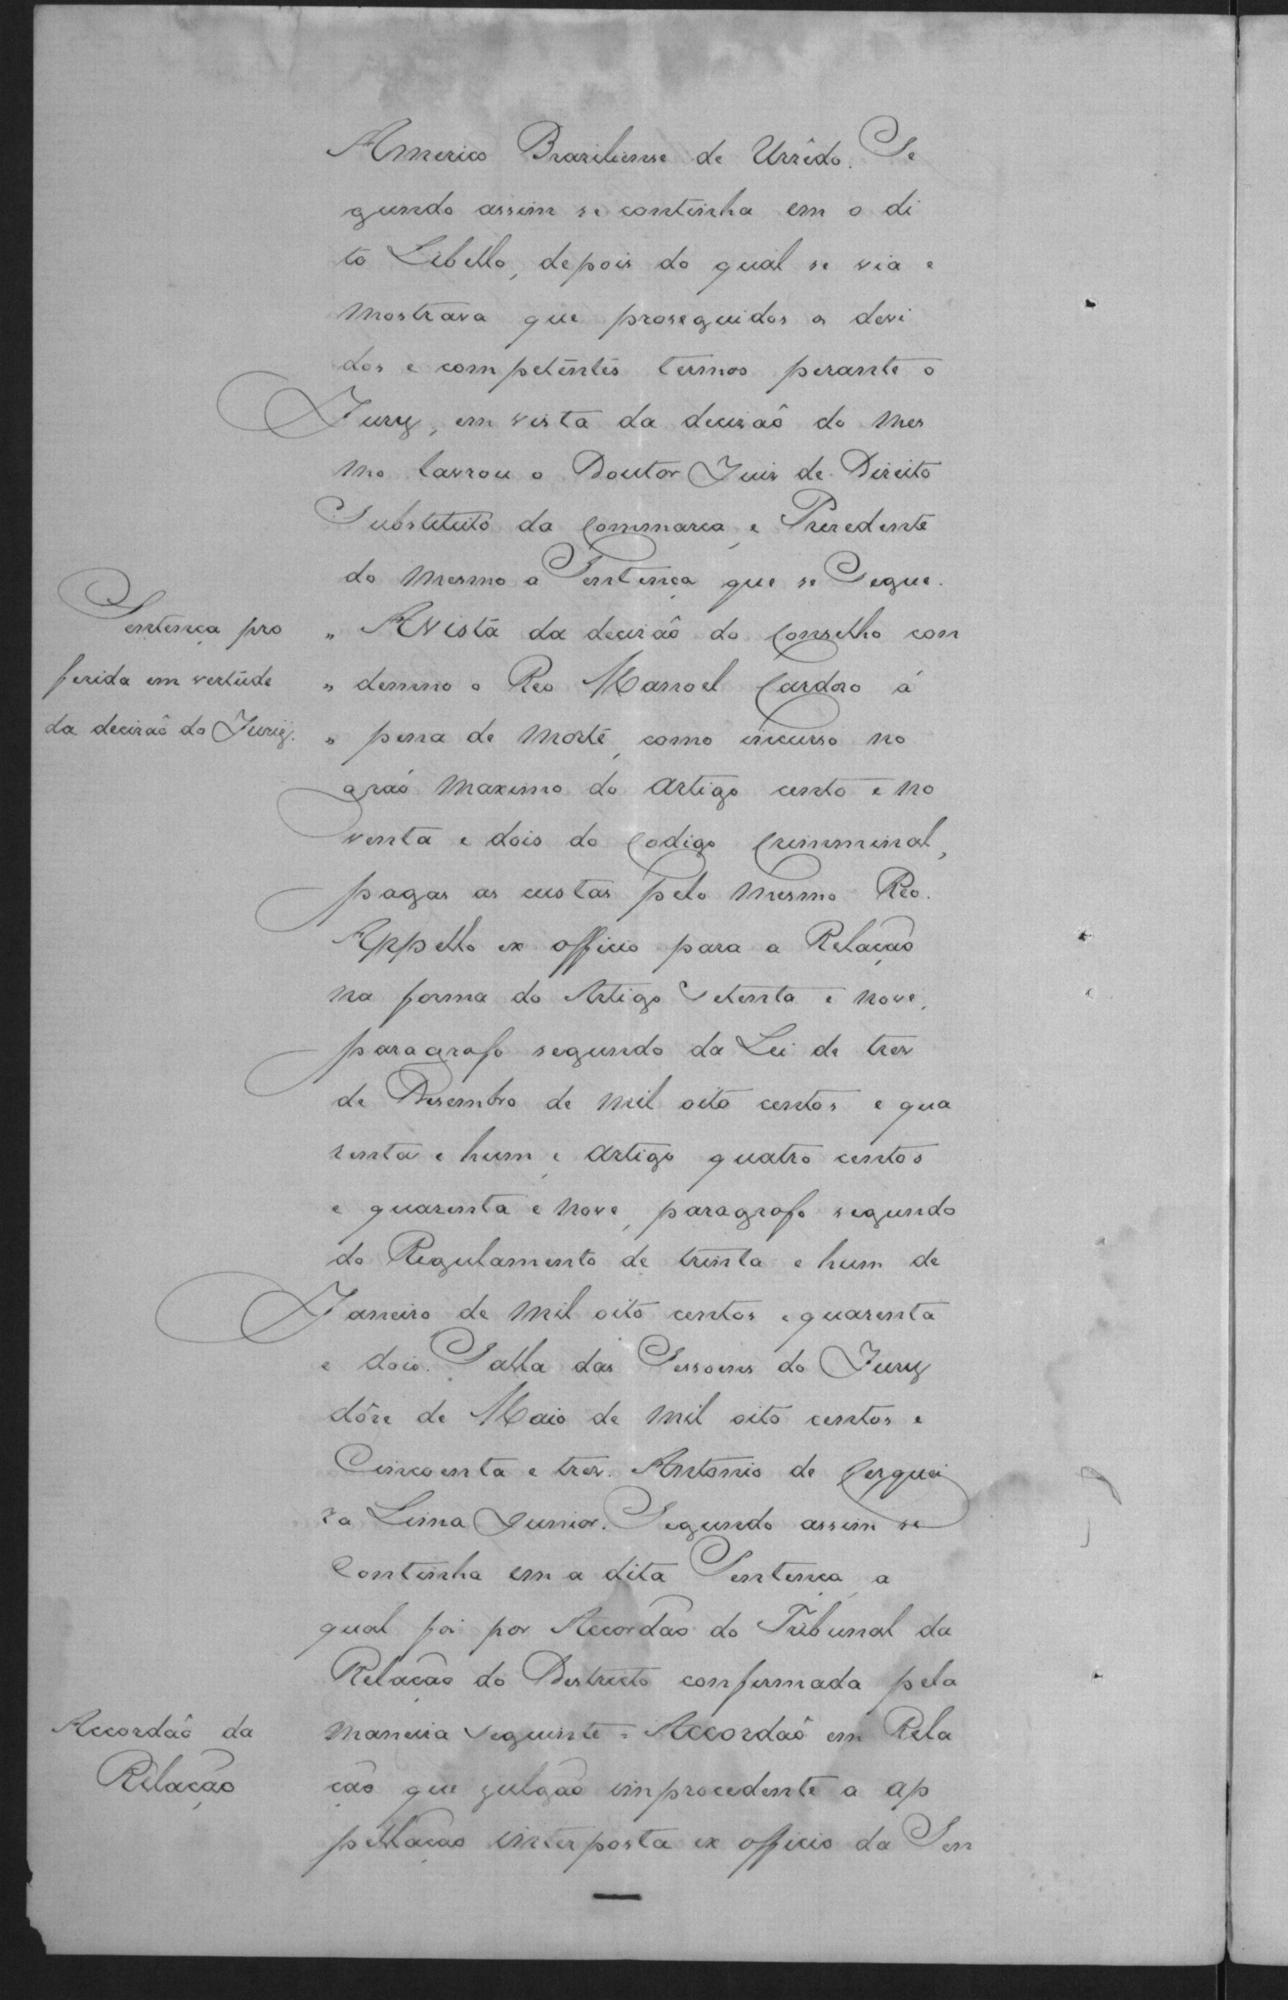 Americo Braziliense de Urzêdo. Se
gundo assim se continha em o di
to Libello, depois do qual se via e
mostrava que proseguidos os devi
dos e competentes termos perante o
Jury, em vista da decisaõ do mes
mo lavrou o Doutor Juis de Direito
Substituto da Commarca, e Prezedente
do mesmo a Sentença que se Segue.
Sentença pro
ferida em vertude
da decisaõ do Jury.
" A Vista da decisaõ do Conselho con
" demno o Reo Manoel Cardozo á
" pena de morte, como incurso no
gráo maximo do artigo cento e no
venta e dois do Codigo Crimminal,
pagas as custas pelo mesmo Reo.
Appello ex officio para a Relação
na forma do Artigo Setenta e nove,
paragrafo segundo da Lei de tres
de Desembro de mil oito centos e qua
renta e hum, e artigo quatro centos
e quarenta e nove, paragrafo segundo
do Regulamento de trinta e hum de
Janeiro de mil oito centos e quarenta
e dois. Salla das Sessoens do Jury
dôze de Maio de mil oito centos e
Cincoenta e tres. Antonio de Cerquei
ra Lima Junior. Segundo assim se
Continha em a dita Sentença, a
qual foi por Accordão do Tribunal da
Relação do Destricto confirmada pela
Accordaõ da
Relação
maneira Seguinte = Accordaõ em Rela
ção que julgão improcedente a ap
pellação interposta ex officio da Sen